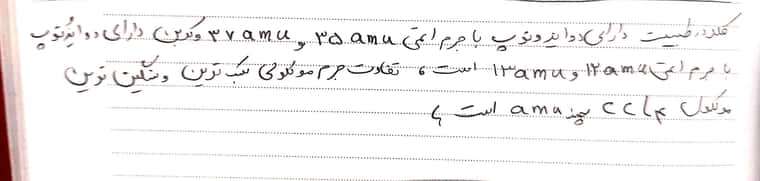 کلر در طبیعت دارای دو ایزوتوپ با جرم اتمی ۳۵ amu و ۳۷ amu وکربن دارای دو ایزوتوپ
با جرم اتمی ۱۲ amu و ۱۳ amu است ، تفاوت جرم مولکولی سبک ترین و سنگین ترین
مولکول CCl۴ چند amu است ؟